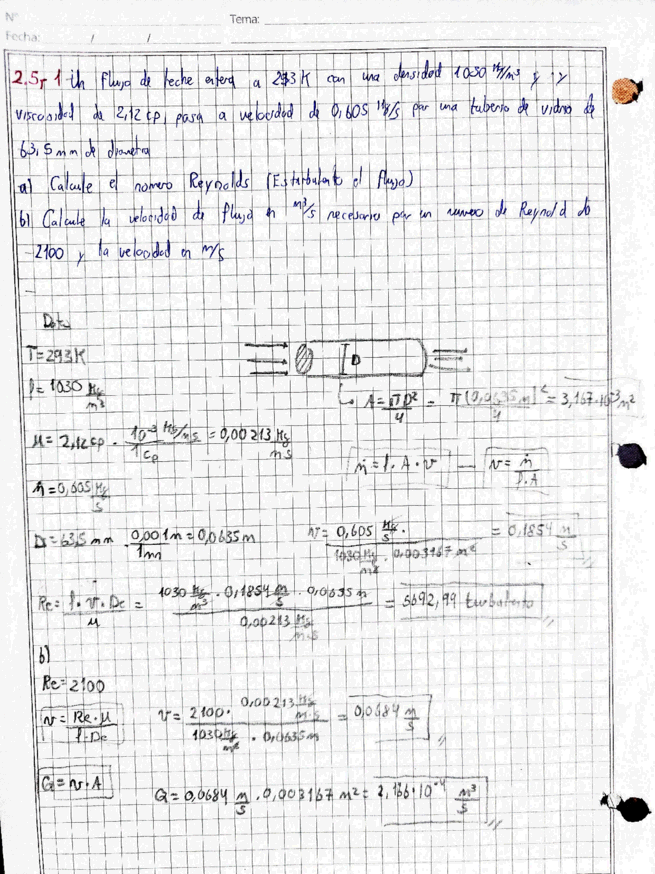 N°
Tema:
Fecha: / /
2.5-1- Un flujo de leche entera a 293K con una densidad 1030 Kg/m³ y
viscosidad de 2,12 cp, pasa a velocidad de 0,605 Kg/s por una tuberia de vidrio de
63,5 mm de diametro
a) Calcule el numero Reynolds (Es turbulento el flujo)
b) Calcule la velocidad de flujo en m³/s necesario por un numero de Reynold de
2100 y la velocidad en m/s
Datos
T=293K
ρ=1030 Kg/m³
D
A = πD²/4 = π(0,0635m)²/4 = 3,167·10⁻³m²
μ= 2,12cp · 10⁻³ Kg/ms / 1cp = 0,00213 Kg/ms
ṁ=ρ·A·v — v= ṁ/ρ·A
ṁ=0,605 Kg/s
D=63,5 mm · 0,001m/1mm = 0,0635m
v= 0,605 Kg/s / 1030 Kg/m³ · 0,003167 m² = 0,1854 m/s
Re= ρ·v·De/μ = 1030 Kg/m³ · 0,1854 m/s · 0,0635m / 0,00213 Kg/m·s = 5692,99 turbulento
b)
Re=2100
v= Re·μ/ρ·De
v= 2100 · 0,00213 Kg/m·s / 1030 Kg/m³ · 0,0635m = 0,0684 m/s
Q=v·A
Q= 0,0684 m/s · 0,003167 m² = 2,166·10⁻⁴ m³/s